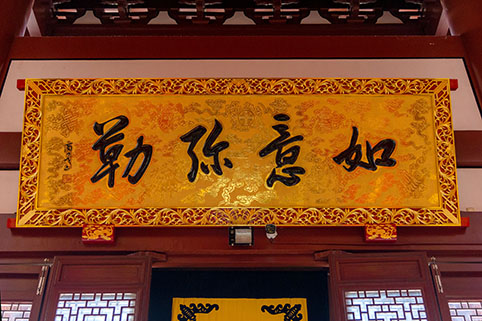 如意弥勒